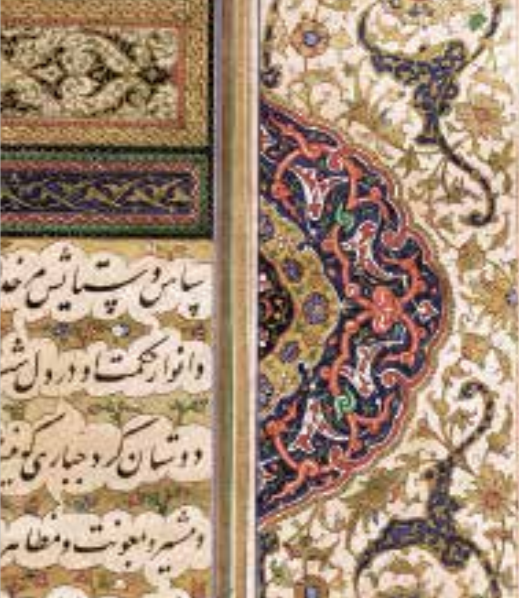 سپاس و ستایش مر خد
و انوار حکمت او در دل ش
دوستان کرد جباری که
و مشیر و بمعونت و مظا